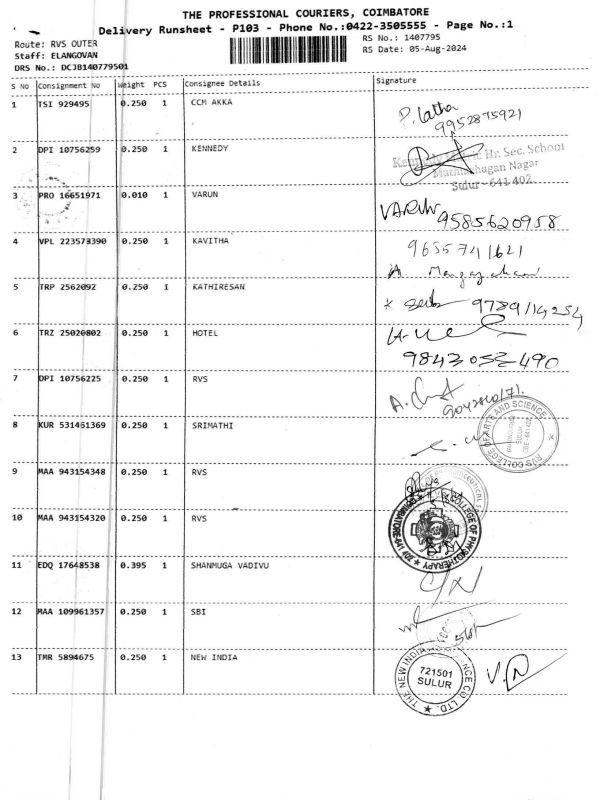 THE PROFESSIONAL COURIERS, COIMBATORE
Delivery Runsheet - P103 - Phone No.:0422-3505555 - Page No.:1
Route: RVS OUTER
RS No.: 1407795
Staff: ELANGOVAN
RS Date: 05-Aug-2024
DRS No.: DCJB140779501
S No Consignment No Weight PCS Consignee Details Signature
1 TSI 929495 0.250 1 CCM AKKA
P. Latha
9952875921
2 DPI 10756259 0.250 1 KENNEDY
Hr. Sec. School
Nagar
Sulur - 641 402
3 PRO 16651971 0.010 1 VARUN
VARUN
9585620958
4 VPL 223578390 0.250 1 KAVITHA
9655741621
5 TRP 2562092 0.250 1 KATHIRESAN
9789114254
6 TRZ 25020802 0.250 1 HOTEL
9843052490
7 DPI 10756225 0.250 1 RVS
8 KUR 531461369 0.250 1 SRIMATHI
RVS COLLEGE OF ARTS AND SCIENCE
SULUR
CBE-641 402
9 MAA 943154348 0.250 1 RVS
10 MAA 943154320 0.250 1 RVS
COLLEGE OF PHYSIOTHERAPY
COIMBATORE-641 402
11 EDQ 17648538 0.395 1 SHANMUGA VADIVU
12 MAA 109961357 0.250 1 SBI
13 TMR 5894675 0.250 1 NEW INDIA
THE NEW INDIA ASSURANCE CO. LTD.
721501
SULUR